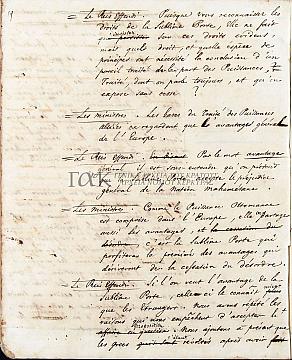 = Le Reis Effendi. Puisque vous reconnaissez les
droits de la Sublime Porte, Elle ne fait
que ses droits évidens,
mais quels droits, et quelle espèce de
principes ont nécessité la conclusion d'un
pareil traité de la part des Puissances,
Traité, dont on parle toujours et qu'on
expose sans cesse ?
= Les ministres. Les bases du Traité des Puissances
alliées ne regardent que les avantages généraux
de l'Europe.
= Le Reis Effendi. Par le mot avantage
général
la Sublime Porte le préjudice
général de la Nation Mahométane.
ΓΑΚ
ΓΕΝΙΚΑ ΑΡΧΕΙΑ ΤΟΥ ΚΡΑΤΟΥΣ
ΑΡΧΕΙΑ ΝΟΜΟΥ ΚΕΡΚΥΡΑΣ
= Les ministres. Comme la Puissance Ottomane
est comprise dans l'Europe, elle partage
aussi les avantages, et
c'est la Sublime Porte qui
profitera la première des avantages qui
dériveront de la cessation du désordre.
= Le Reis Effendi. Si l'on veut l'avantage de la
Sublime Porte, celle-ci le connaît mieux
que les étrangers. Nous avons répété les
raisons qui nous empêchent d'accepter
Nous ajoutons à présent que
les grecs révoltés après avoir